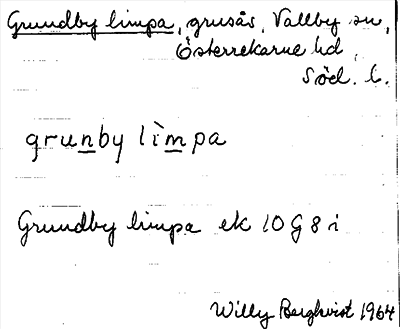 Grundby limpa, grusås, Vallby sn,
Österrekarne hd,
Söd. l.
grunby lìmpa
Grundby limpa ek 10G8i
Willy Bergkvist 1964